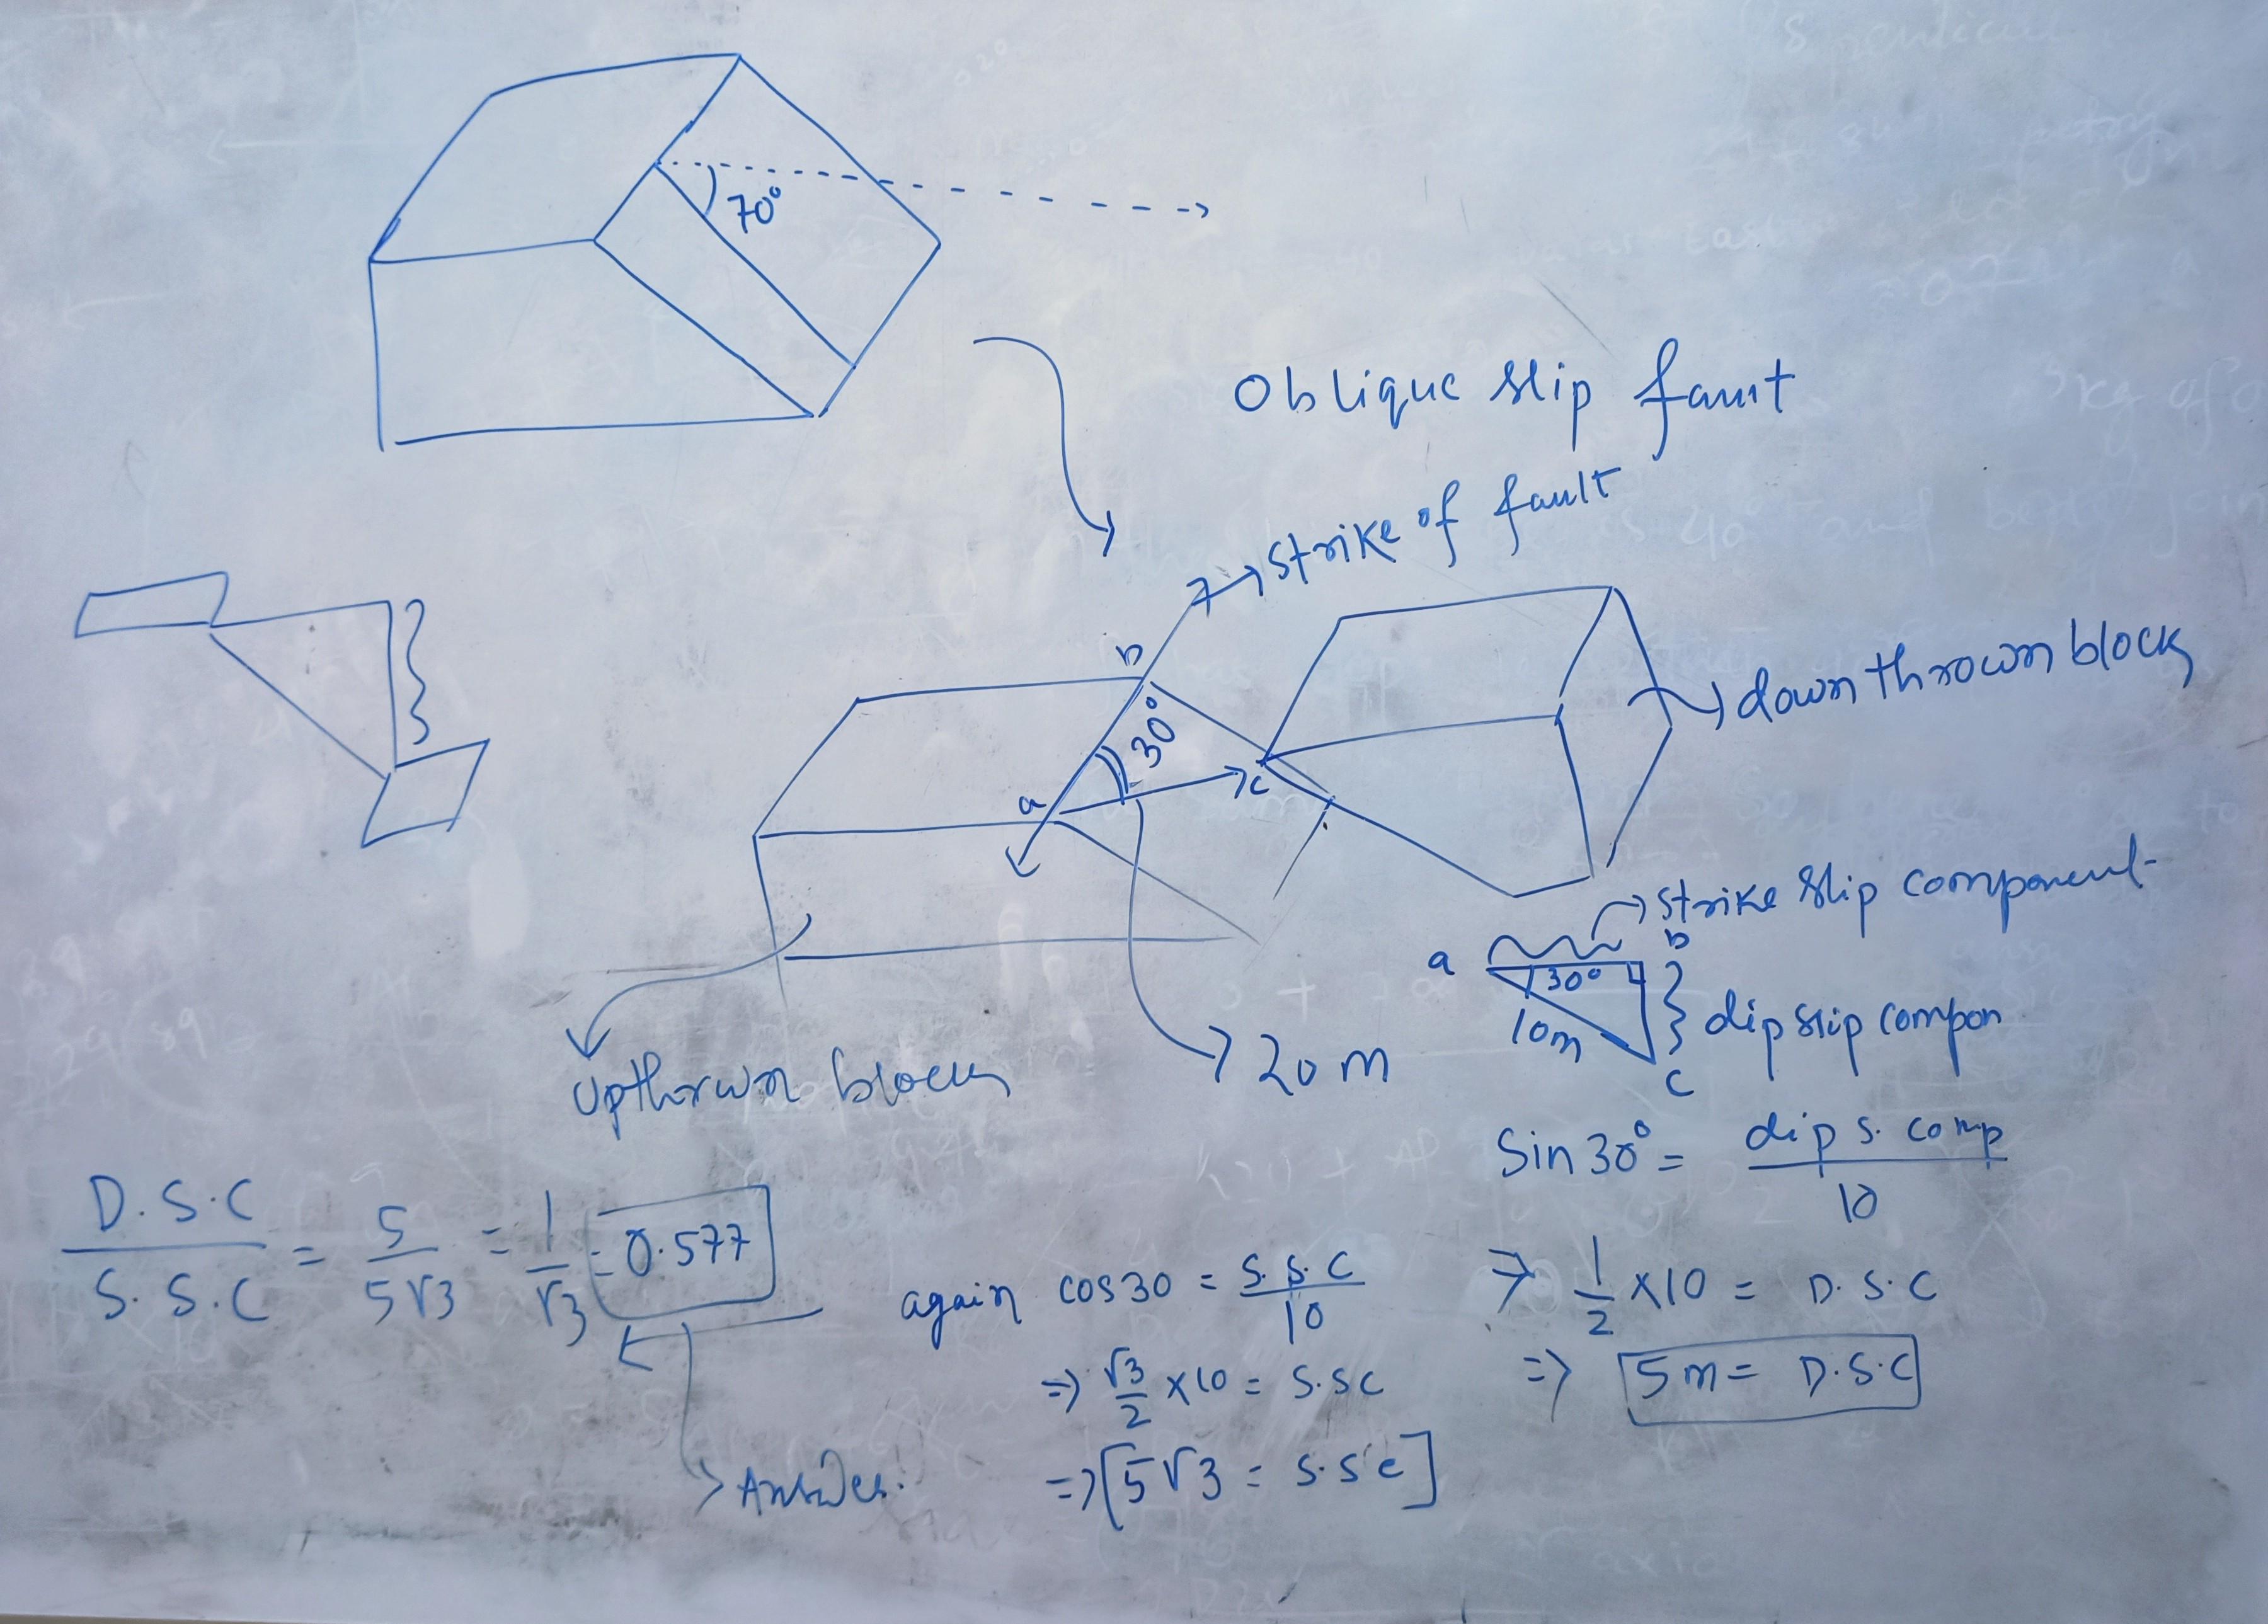 70°
Oblique slip fault
strike of fault
b
30°
a
c
down thrown block
strike slip component
a
b
30°
10m
dip slip compon
c
20 m
Upthrwn block
Sin 30° = dip s. comp / 10
D.S.C / S.S.C = 5 / 5√3 = 1 / √3 = 0.577
again cos30 = S.S.C / 10
=> 1/2 × 10 = D.S.C
=> √3/2 × 10 = S.SC
=> 5m = D.S.C
=> [5√3 = S.S.C]
Answer.